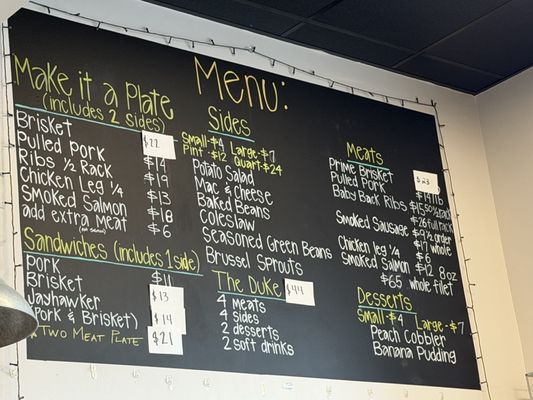 Menu:
Make it a Plate
(includes 2 sides)
Brisket $22
Pulled Pork $14
Ribs 1/2 Rack $19
Chicken Leg 1/4 $13
Smoked Salmon $18
add extra meat $6
Sandwiches (includes 1 side)
Pork $11
Brisket $13
Jayhawker $14
(Pork & Brisket)
*Two Meat Plate $21
Sides
Small-$4 Large-$7
Pint-$12 Quart-$24
Potato Salad
Mac & Cheese
Baked Beans
Coleslaw
Seasoned Green Beans
Brussel Sprouts
The Duke $44
4 Meats
4 sides
2 desserts
2 soft drinks
Meats
Prime Brisket $23
Pulled Pork $19 lb
Baby Back Ribs $15
$26 full rack
Smoked Sausage $9
Chicken leg 1/4 $6
$17 whole
Smoked Salmon $12 8oz
$65 whole filet
Desserts
Small-$4 Large-$7
Peach Cobbler
Banana Pudding